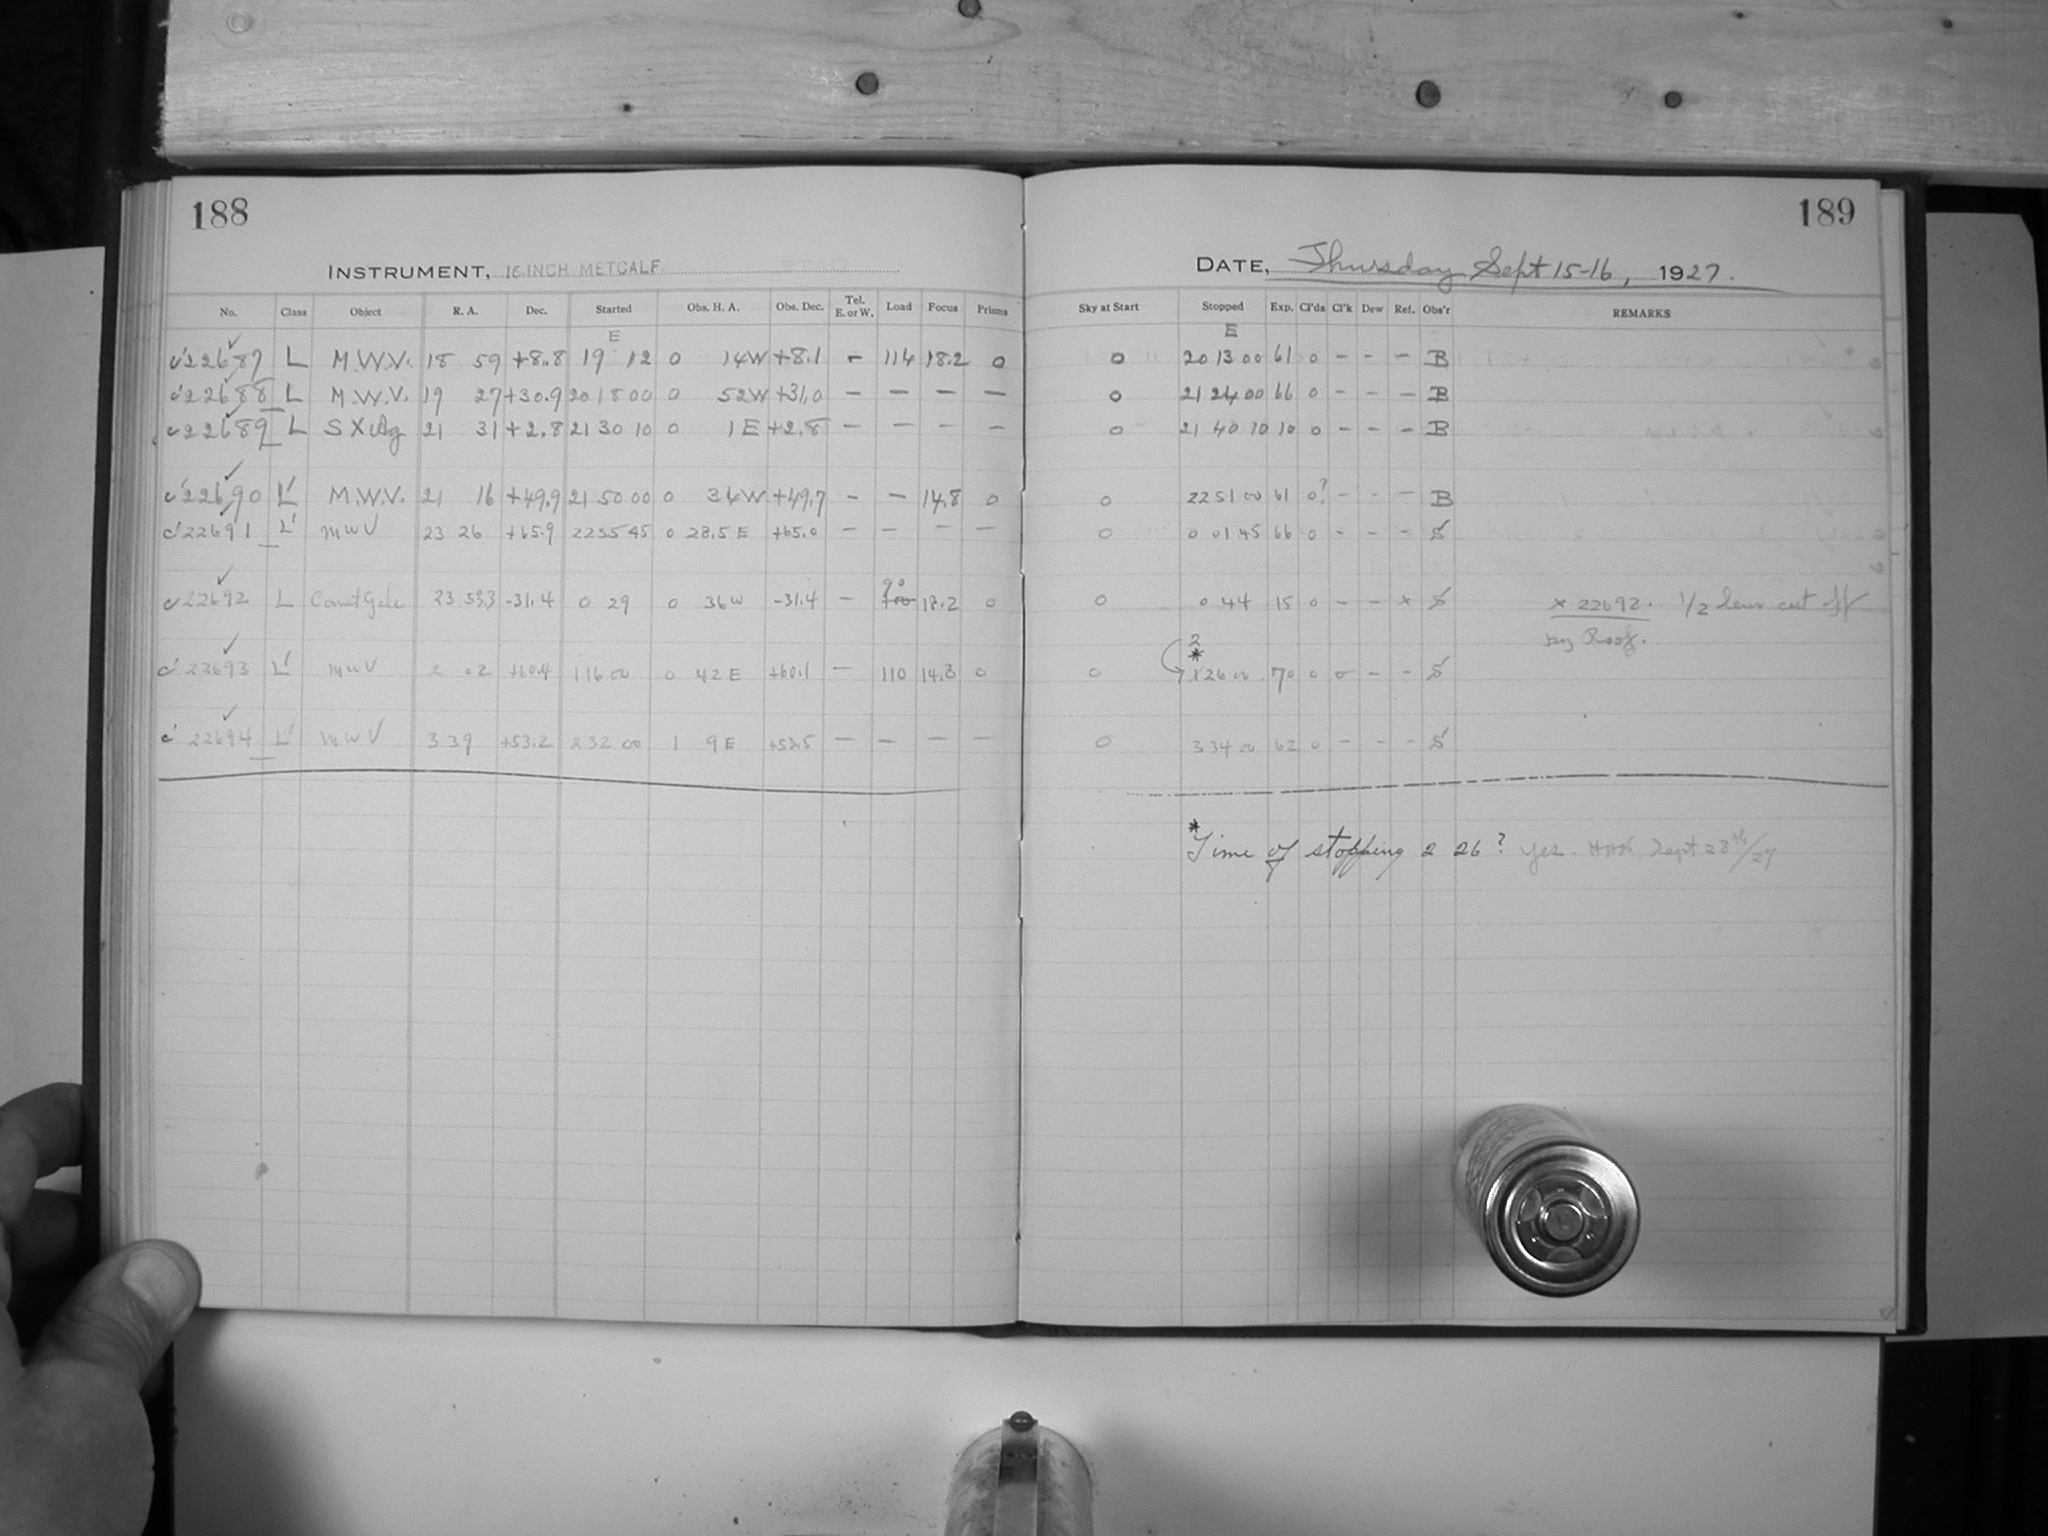 188
189
INSTRUMENT, 16 INCH METCALF
DATE, Thursday Sept 15-16, 1927.
No. Class Object R. A. Dec. Started Obs. H. A. Obs. Dec. Tel. E. or W. Load Focus Prisms Sky at Start Stopped Exp. Cl'ds Cl'k Dew Ref. Obs'r REMARKS
E E
22687 L M.W.V. 18 59 +8.8 19 12 0 14W +8.1 - 114 18.2 0 0 20 13 00 61 0 - - - B
22688 L M.W.V. 19 27 +30.9 20 18 00 0 52W +31.0 - - - - 0 21 24 00 66 0 - - - B
22689 L SX Aq 21 31 +2.8 21 30 10 0 1E +2.8 - - - - 0 21 40 10 10 0 - - - B
22690 L' M.W.V. 21 16 +49.9 21 50 00 0 34W +49.7 - - 14.8 0 0 22 51 00 61 0? - - - B
22691 L' MWV 23 26 +65.9 22 55 45 0 28.5 E +65.0 - - - - 0 0 01 45 66 0 - - - S
90
22692 L Comet Gale 23 53.3 -31.4 0 29 0 36W -31.4 - 100 18.2 0 0 0 44 15 0 - - x S x 22692. 1/2 lens cut off
by Roof.
2
*
22693 L' MWV 2 02 +60.4 1 16 00 0 42 E +60.1 - 110 14.8 0 0 1 26 00 70 0 0 - - S
22694 L' MWV 3 39 +53.2 2 32 00 1 9 E +53.5 - - - - 0 3 34 00 62 0 - - - S
*
Time of stopping 2 26? Yes. Sept 28th/27